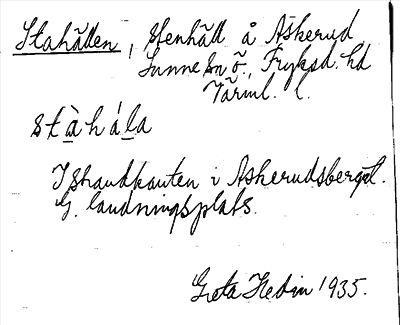 Stahällen, stenhäll å Askerud
Sunne sn ö., Fryksd. hd
Värml. l.
stàhála
I strandkanten i Askerudsberget.
G. landningsplats.
Greta Hedin 1935.